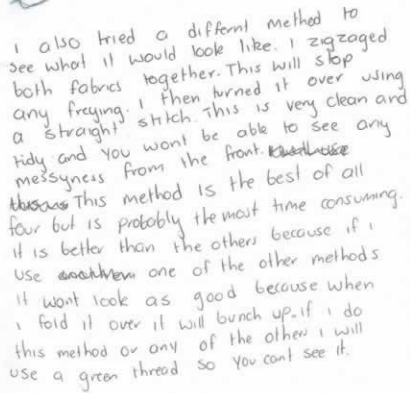 i also tried a differnt method to
see what it would look like. I zigzaged
both fabrics together. This will stop
any freying. I then turned it over using
a straight stitch. This is very clean and
tidy and you wont be able to see any
messyness from the front.
This method is the best of all
four but is probably the most time consuming.
it is better than the others because if i
use one of the other methods
it wont look as good because when
i fold it over it will bunch up. if i do
this method or any of the others i will
use a green thread so you cant see it.